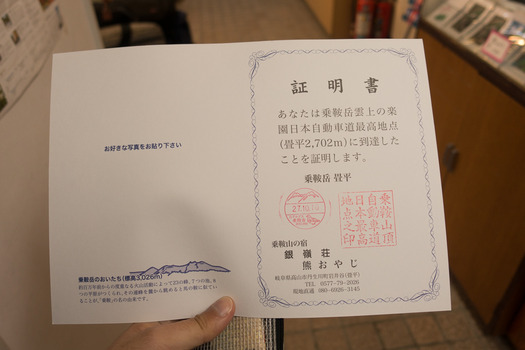 お好きな写真をお貼り下さい
乗鞍岳のおいたち(標高3,026m)
証明書
あなたは乗鞍岳雲上の楽
園日本自動車道最高地点
(畳平2,702m)に到達した
ことを証明します。
乗鞍岳 畳平
乗鞍山頂
自動車道
日本最高
地点之印
乗鞍山の宿
銀嶺荘
熊おやじ
岐阜県高山市丹生川町岩井谷(畳平)
TEL 0577-79-2026
現地直通 080-6926-3145